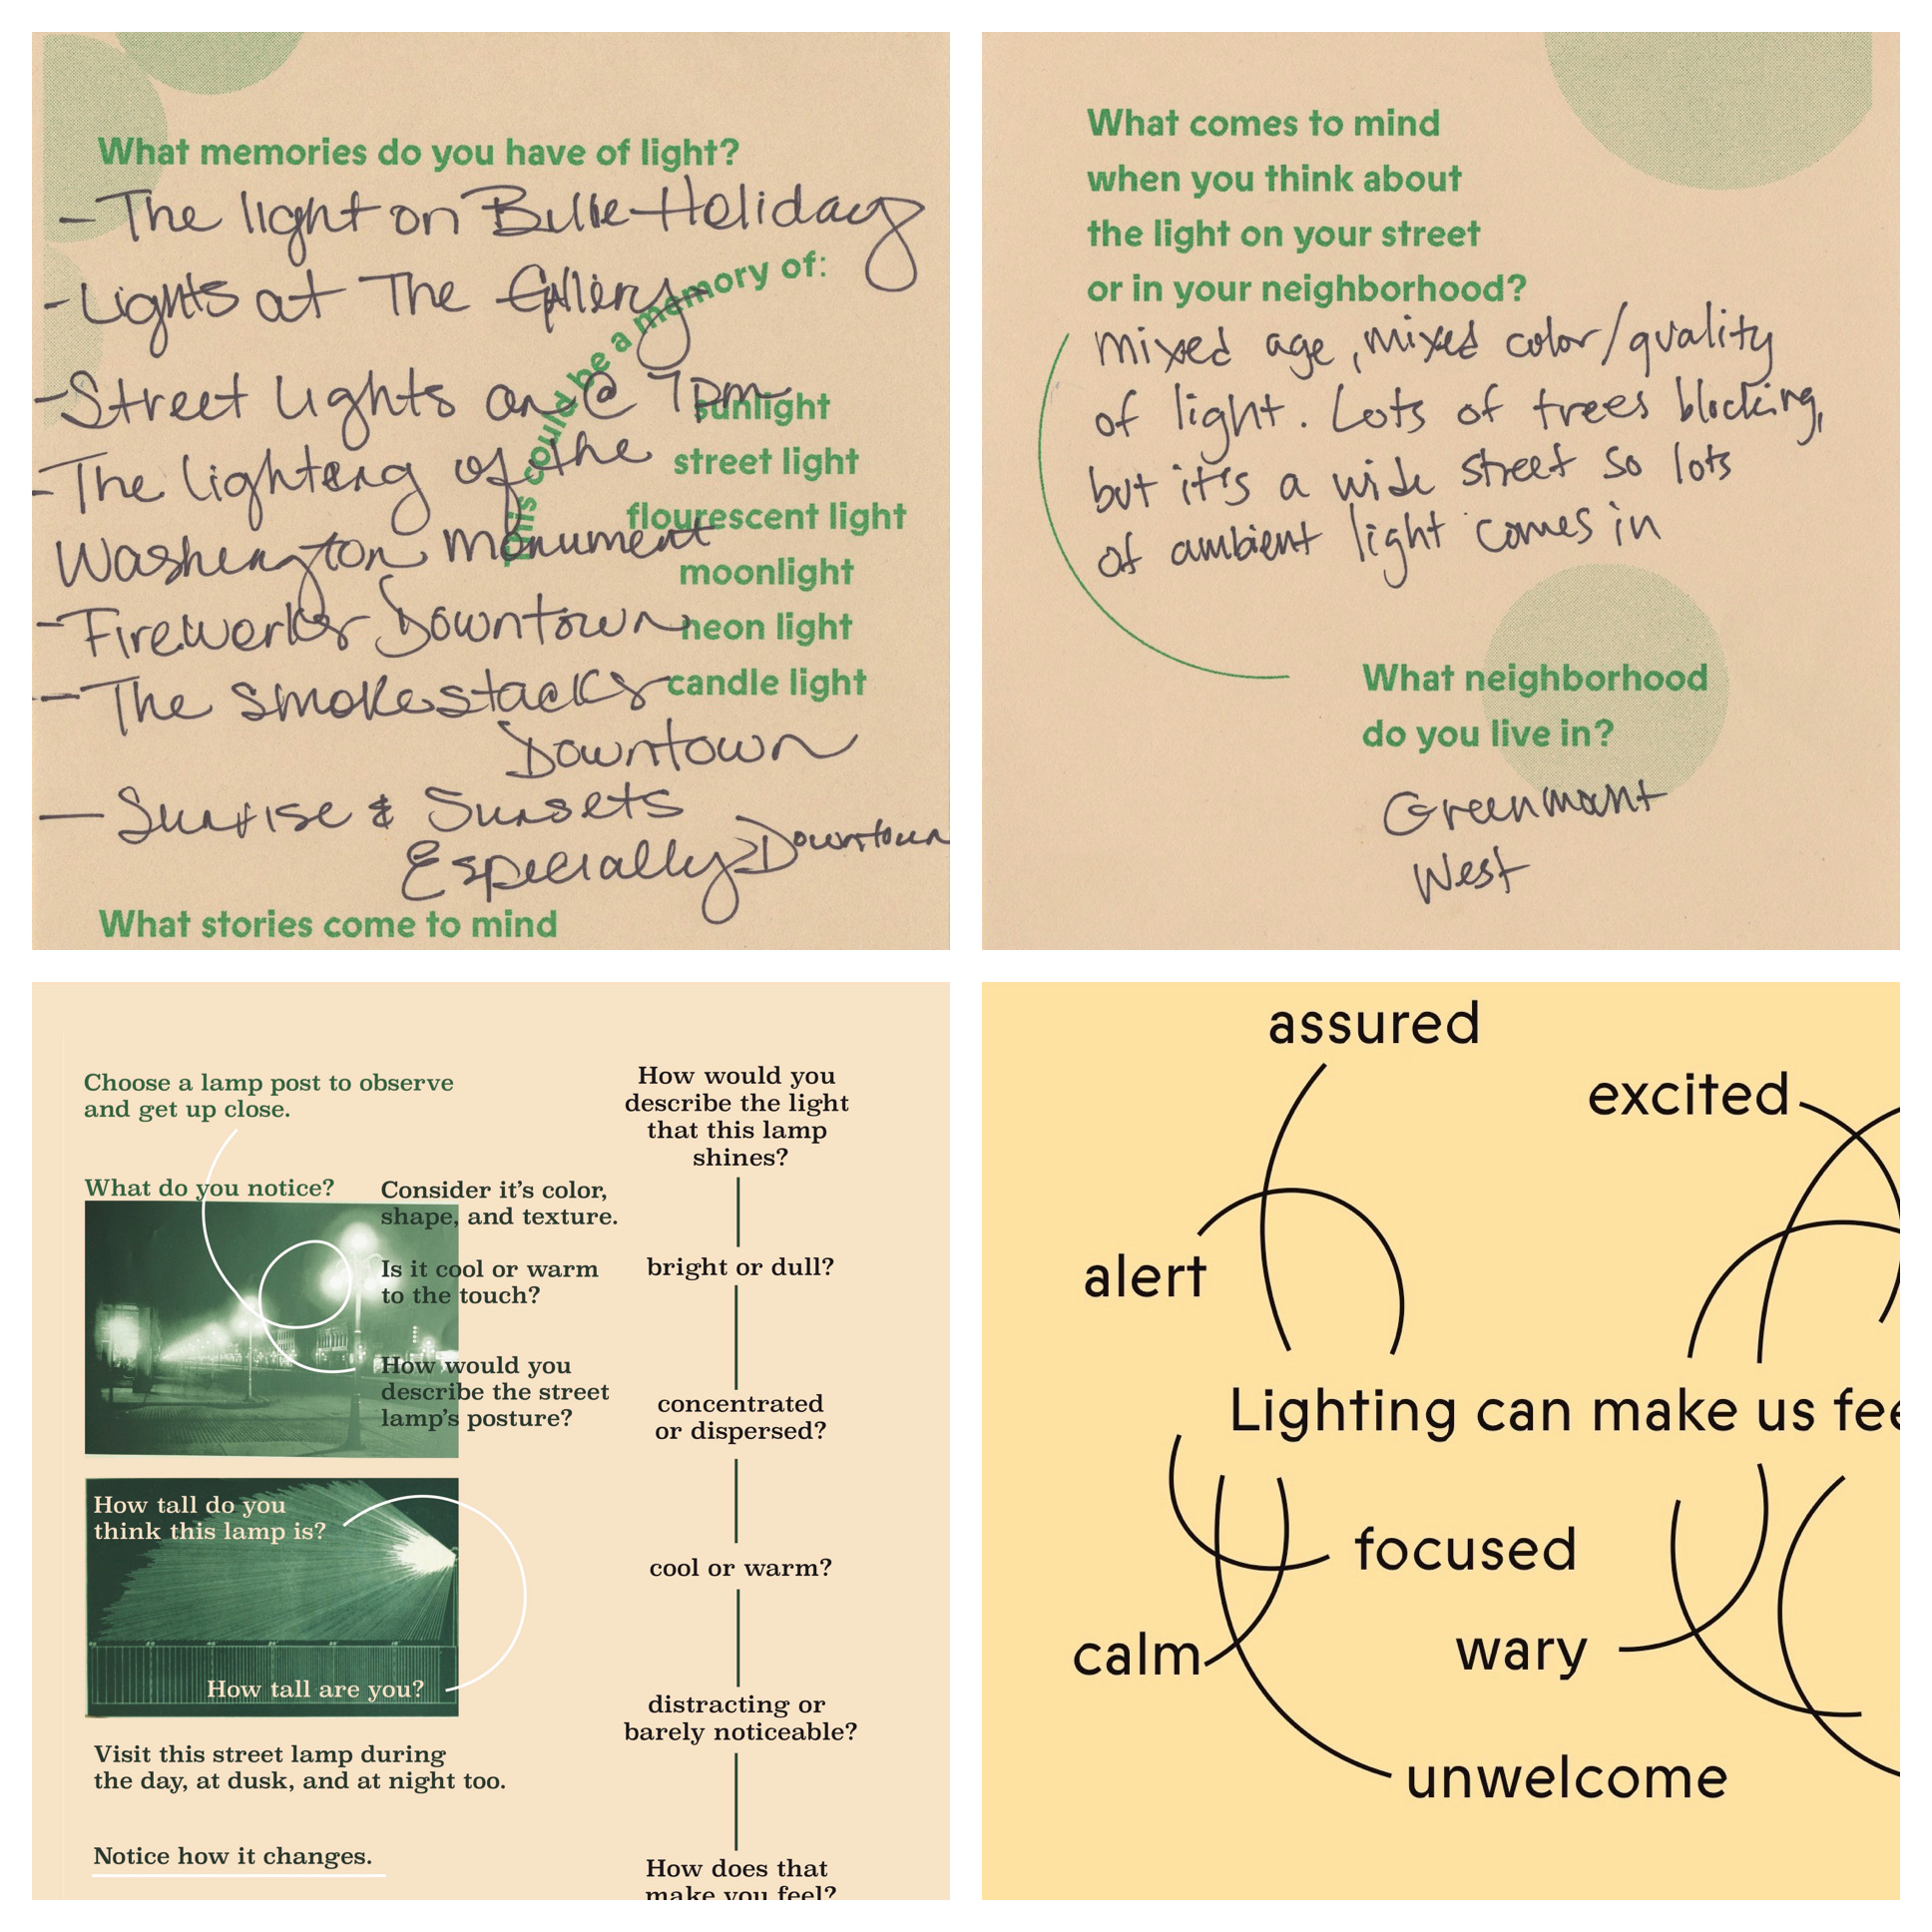 What memories do you have of light?
- The light on Billie Holiday
- Lights at The Gallery
This could be a memory of:
- Street Lights on @ 7pm
- The lighting of the
Washington Monument
- Fireworks Downtown
- The smokestacks
Downtown
- Sunrise & Sunsets
Especially Downtown
sunlight
street light
flourescent light
moonlight
neon light
candle light
What stories come to mind
What comes to mind
when you think about
the light on your street
or in your neighborhood?
mixed age, mixed color/quality
of light. Lots of trees blocking,
but it's a wide street so lots
of ambient light comes in
What neighborhood
do you live in?
Greenmont
West
Choose a lamp post to observe
and get up close.
What do you notice?
Consider it's color,
shape, and texture.
Is it cool or warm
to the touch?
How would you
describe the street
lamp's posture?
How tall do you
think this lamp is?
How tall are you?
Visit this street lamp during
the day, at dusk, and at night too.
Notice how it changes.
How would you
describe the light
that this lamp
shines?
bright or dull?
concentrated
or dispersed?
cool or warm?
distracting or
barely noticeable?
How does that
make you feel?
assured
excited
alert
Lighting can make us fee
focused
calm
wary
unwelcome